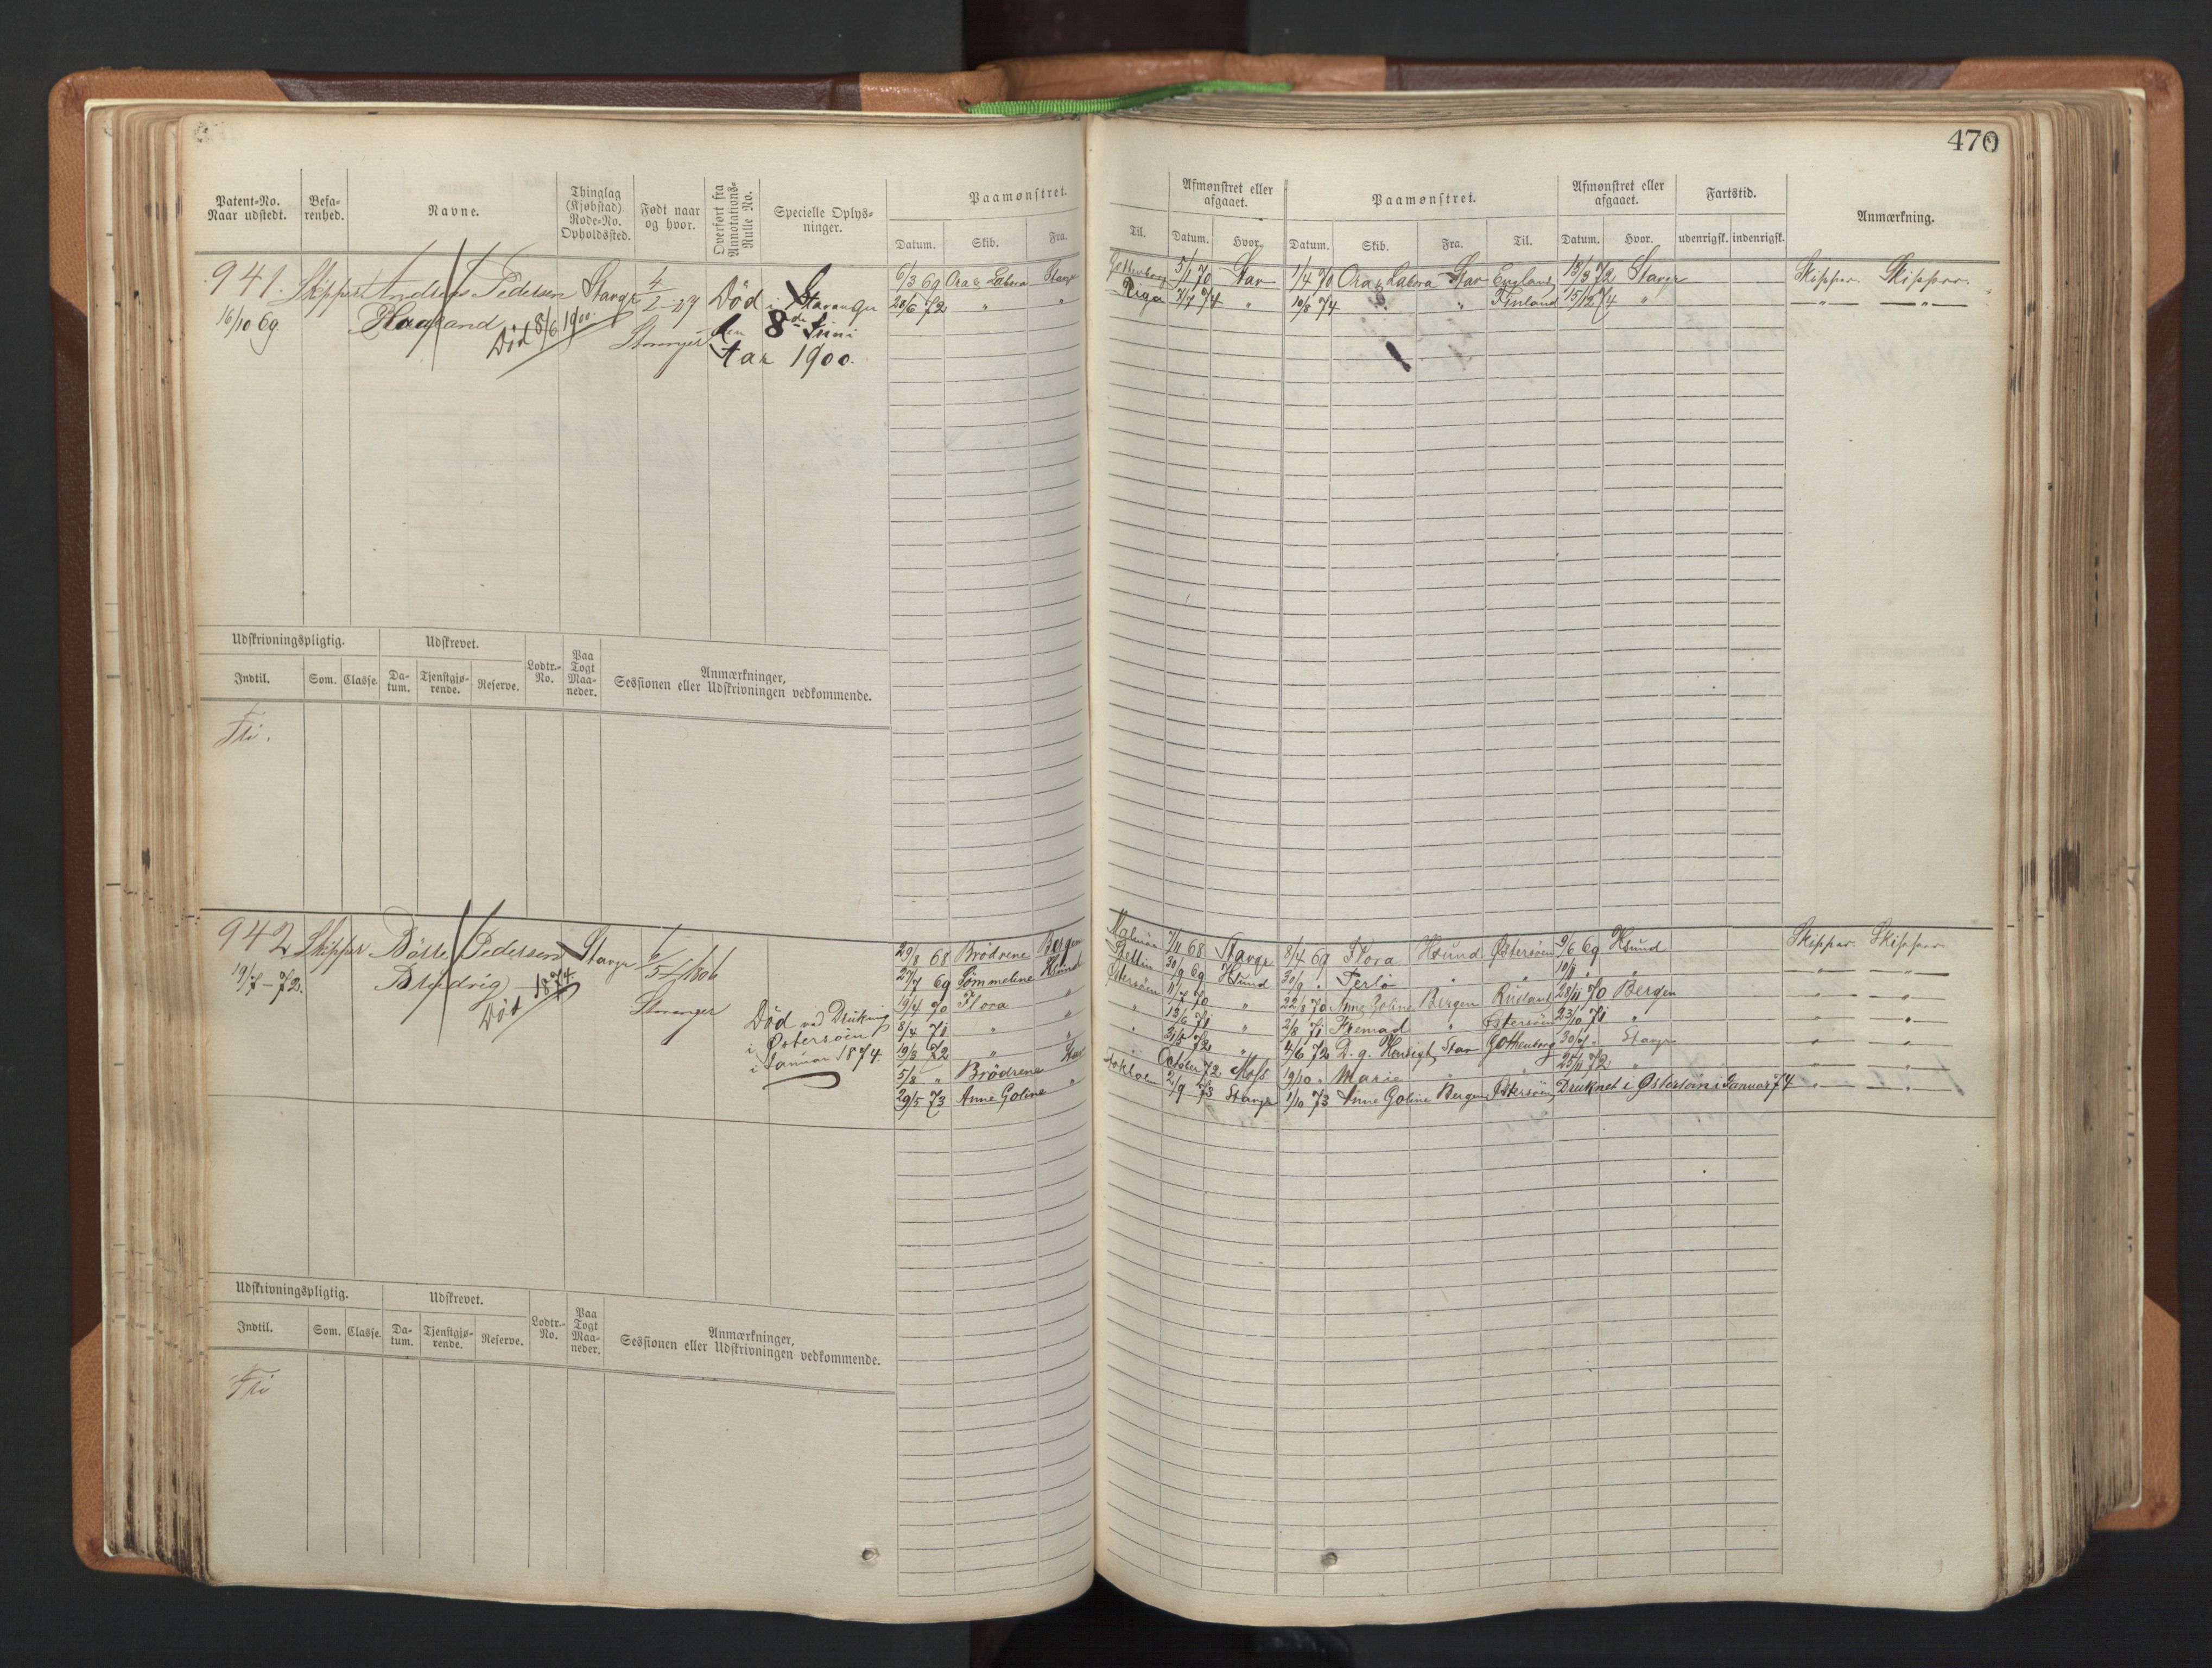 470
Patent-No. Naar udstedt. Befarenhed. Navne. Thinglag (Kjøbstad) Rode-No. Opholdssted. Født naar og hvor. Overført fra Annotations-Rulle No. Specielle Oplysninger. Paamønstret. Datum. Skib. Fra. Til. Afmønstret eller afgaaet. Datum. Hvor. Paamønstret. Datum. Skib. Fra. Til. Afmønstret eller afgaaet. Datum. Hvor. Fartstid. udenrigsk. indenrigsk. Anmærkning.
941. Skipper Andreas Pedersen Stavgr 4/2-27 Død i Stavanger
16/10 69 Haaland Død 8/6 1900 Stavanger den 8de Juni
Aar 1900.
6/3 69 Ora & Labora Stavgr Gottenborg 5/1 70 Stav 1/4 70 Ora & Labora Stav England 13/3 72 Stavgr Skipper. Skipper.
20/6 72 " " Riga 7/7 74 " 10/8 74 " " Finland 15/12 74 " — " — — " —
Udskrivningspligtig. Udskrevet. Lodtr.-No. Paa Togt Maaneder. Anmærkninger, Sessionen eller Udskrivningen vedkommende.
Indtil. Som. Classe. Datum. Tjenstgjørende. Reserve.
Fri.
942 Skipper Börre Pedersen Stavgr 6/5 1806
19/7-72. Død 1874 Stavanger
Død ved Drukning
i Østersøen
i Januar 1874.
29/8 68 Brödrene Bergen Malmöe 7/11 68 Stavgr 8/4 69 Flora Hsund Østersöen 9/6 69 Hsund Skipper. Skipper
27/7 69 Sommelene Hsund Stettin 30/9 69 Hsund 30/9 " " " 10/11 " " — " — — " —
19/4 70 Flora " Østersöen 11/7 70 " 22/8 70 Anne Goline Bergen Rusland 28/11 70 Bergen — " — — " —
8/4 71 " " " 13/6 71 " 2/8 71 " Østersöen 23/10 71 " — " — — " —
19/3 72 " " " 31/5 72 " 4/6 72 Stav Gottenborg 30/7 " Stavgr — " — — " —
5/8 " Brödrene Stav " October 72 Moss 19/10 " Marie " " 25/11 72 " — " — — " —
29/5 73 Anne Goline " Stokholm 2/9 73 Stavgr 1/10 73 Anne Goline Bergen Østersöen Druknet i Østersöen i Januar 74 — " — — " —
Udskrivningspligtig. Udskrevet. Lodtr.-No. Paa Togt Maaneder. Anmærkninger, Sessionen eller Udskrivningen vedkommende.
Indtil. Som. Classe. Datum. Tjenstgjørende. Reserve.
Fri